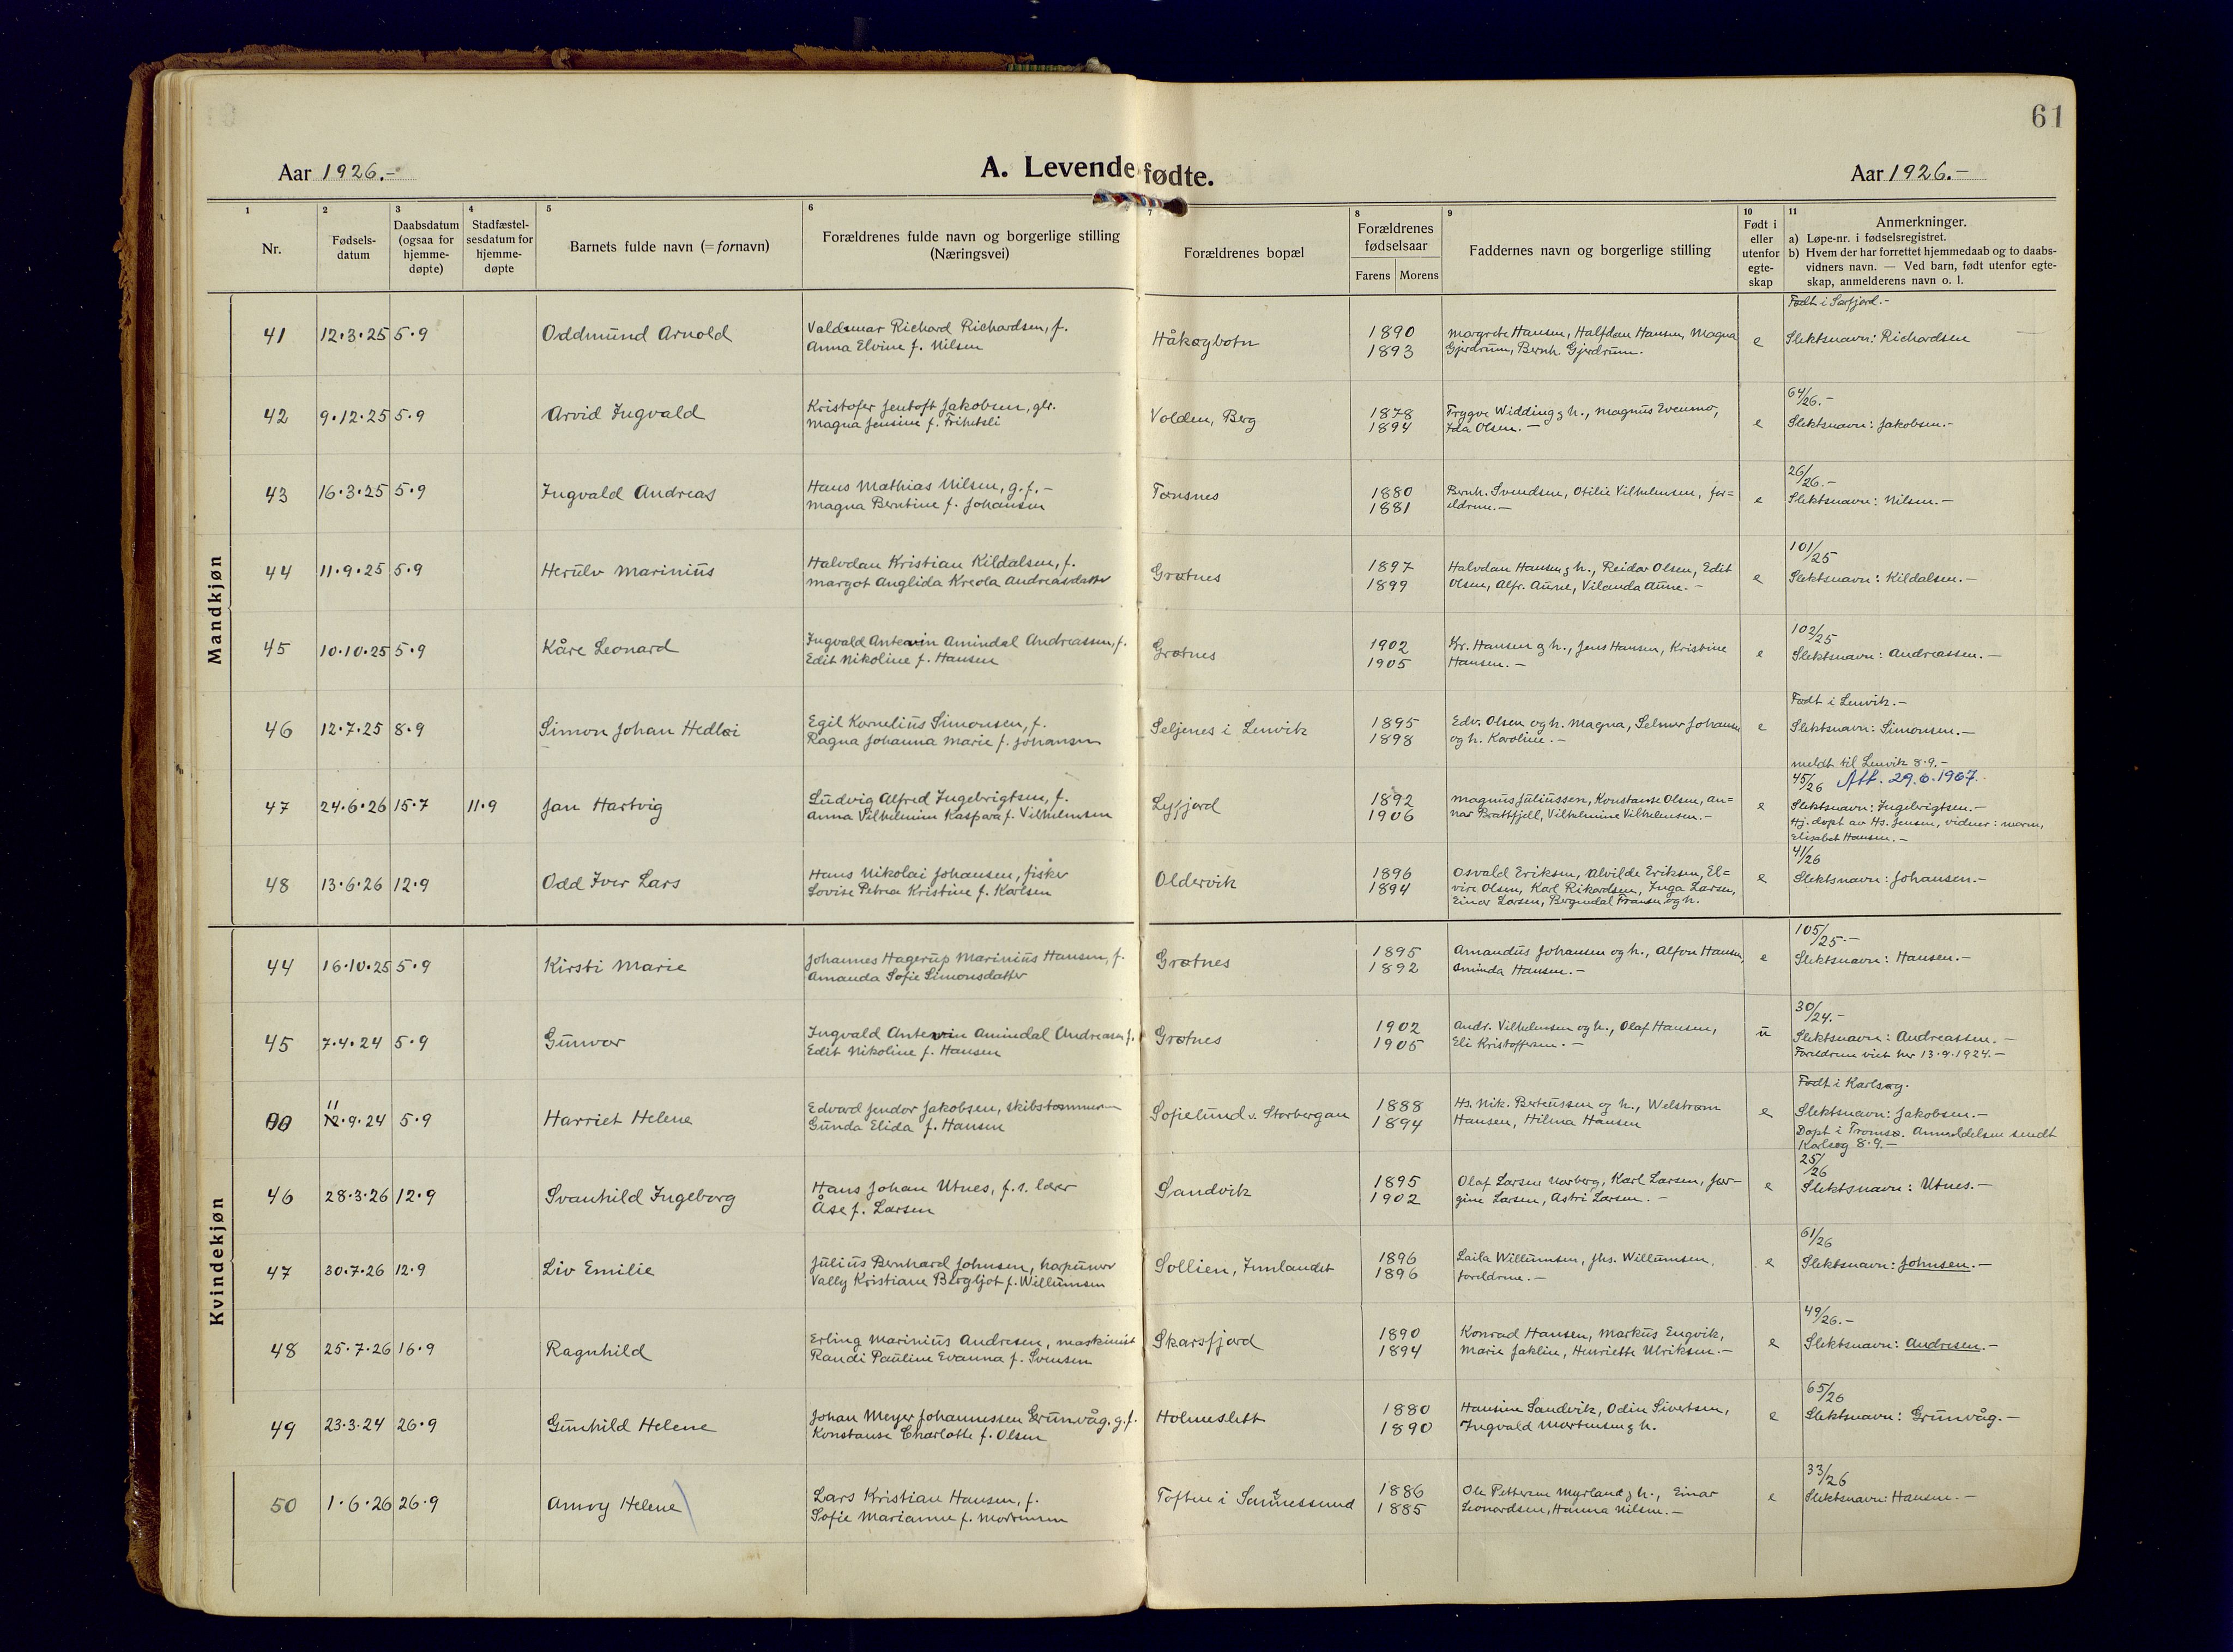 61
Aar 1926.-
A. Levendefødte.
Aar 1926.-
1
2
3
4
5
6
7
8
9
10
11
Nr.
Fødsels-
datum
Daabsdatum
(ogsaa for
hjemme-
døpte)
Stadfæstel-
sesdatum for
hjemme-
døpte
Barnets fulde navn (= fornavn)
Forældrenes fulde navn og borgerlige stilling
(Næringsvei)
Forældrenes bopæl
Forældrenes
fødselsaar
Farens Morens
Faddernes navn og borgerlige stilling
Født i
eller
utenfor
egte-
skap
Anmerkninger.
a) Løpe-nr. i fødselsregistret.
b) Hvem der har forrettet hjemmedaab og to daabs-
vidners navn. — Ved barn, født utenfor egte-
skap, anmelderens navn o. l.
Mandkjøn
Født i Sørfjord.-
41 12.3.25 5.9 Oddmund Arnold Valdemar Richard Richardsen, f. Håkøybotn 1890 Margrete Hansen, Halfdan Hansen, Magna e Slektsnavn: Richardsen
Anna Elvine f. Nilsen 1893 Gjerdrum, Bernh. Gjerdrum.
64/26.-
42 9.12.25 5.9 Arvid Ingvald Kristofer Jentoft Jakobsen, gbr. Volden, Berg 1878 Trygve Widding g h., Magnus Evenmo, e Slektsnavn: Jakobsen.-
Magna Jensine f. Frihetsli 1894 Ida Olsen.-
26/26.-
43 16.3.25 5.9 Ingvald Andreas Hans Mathias Nilsen, g.f.- Tønsnes 1880 Bernh. Svendsen, Otilie Vilhelmsen, for= e Slektsnavn: Nilsen.-
Magna Berntine f. Johansen 1881 eldrene.-
101/25
44 11.9.25 5.9 Herulv Marinius Halvdan Kristian Kildalsen, f. Grøtnes 1897 Halvdan Hansen g h., Reidar Olsen, Edit e Slektsnavn: Kildalsen.-
Margot Anglida Kreola Andreasdatter 1899 Olsen, Alfr. Aune, Vilanda Aune.-
102/25
45 10.10.25 5.9 Kåre Leonard Ingvald Antonin Amindal Andreassen, f. Grøtnes 1902 Kr. Hansen g h., Jens Hansen, Kristine e Slektsnavn: Andreassen.-
Edit Nikoline f. Hansen 1905 Hansen.-
Født i Lenvik.-
46 12.7.25 8.9 Simon Johan Hedløi Egil Kornelius Simonsen, f. Seljenes i Lenvik 1895 Edv. Olsen og h. Magna, Selmer Johansen e Slektsnavn: Simonsen.-
Ragna Johanna Marie f. Johansen 1898 og h. Karoline.-
meldt til Lenvik 8.9.-
45/26 Att. 29.6.1967.
47 24.6.26 15.7 11.9 Jan Hartvig Ludvig Alfred Ingebrigtsen, f. Lyfjord 1892 Magnus Juliussen, Konstanse Olsen, An= e Slektsnavn: Ingebrigtsen.-
Anna Vilhelmine Kaspara f. Vilhelmsen 1906 nar Brattfjell, Vilhelmine Vilhelmsen.- Hj. døpt av Hs. Jensen, vidner: moren,
Elisabet Hansen.-
41/26
48 13.6.26 12.9 Odd Iver Lars Hans Nikolai Johansen, fisker Oldervik 1896 Osvald Eriksen, Alvilde Eriksen, El= e Slektsnavn: Johansen.-
Lovise Petrea Kristine f. Karlsen 1894 vire Olsen, Karl Rikardsen, Inga Larsen,
Einar Larsen, Bergindal Fransen og h.
Kvindekjøn
105/25.-
44 16.10.25 5.9 Kirsti Marie Johannes Hagerup Marinius Hansen, f. Grøtnes 1895 Amandus Johansen og h., Alfon Hansen, e Slektsnavn: Hansen.-
Amanda Sofie Simonsdatter 1892 Aminda Hansen.-
30/24.-
45 7.4.24 5.9 Gunvor Ingvald Antonin Amindal Andreasen f. Grøtnes 1902 Andr. Vilhelmsen og h., Olaf Hansen, u Slektsnavn: Andreassen.-
Edit Nikoline f. Hansen 1905 Eli Kristoffersen.- Foreldrene viet her 13.9.1924.-
Født i Karlsøy.
00 11.9.24 5.9 Harriet Helene Edvard Jendor Jakobsen, skibstømmerm Sofielund v. Storbergan 1888 Hs. Nik. Berteussen og h., Welstrøm e Slektsnavn: Jakobsen.-
Gunda Elida f. Hansen 1894 Hansen, Hilma Hansen Døpt i Tromsø. Anmeldelsen sendt
Karlsøy 8.9.-
25/26
46 28.3.26 12.9 Svanhild Ingeborg Hans Johan Utnes, f.s. lærer Sandvik 1895 Olaf Larsen Norberg, Karl Larsen, Jør- e Slektsnavn: Utnes.-
Åse f. Larsen 1902 gine Larsen, Astri Larsen.-
61/26
47 30.7.26 12.9 Liv Emilie Julius Bernhard Johnsen, harpuner Sollien, Innlandet 1896 Laila Willumsen, Jhs. Willumsen, e Slektsnavn: Johnsen.-
Vally Kristiane Bergljot f. Willumsen 1896 foreldrene.-
49/26.-
48 25.7.26 16.9 Ragnhild Erling Marinius Andresen, maskinist Skarsfjord 1890 Konrad Hansen, Markus Engvik, e Slektsnavn: Andresen.-
Randi Pauline Evanna f. Svensen 1894 Marie Jaklin, Henriette Ulriksen.-
65/26
49 23.3.24 26.9 Gunhild Helene Johan Meyer Johannessen Grunvåg, g.f. Holmeslett 1880 Hansine Sandvik, Odin Sivertsen, e Slektsnavn: Grunvåg.-
Konstanse Charlotte f. Olsen 1890 Ingvald Mortensen g h.
33/26
50 1.6.26 26.9 Amoy Helene Lars Kristian Hansen, f. Toften i 1886 Ole Pettersen Myrland g h., Einar e Slektsnavn: Hansen.-
Sofie Marianne f. Mortensen 1885 Leonardsen, Hanna Nilsen.-